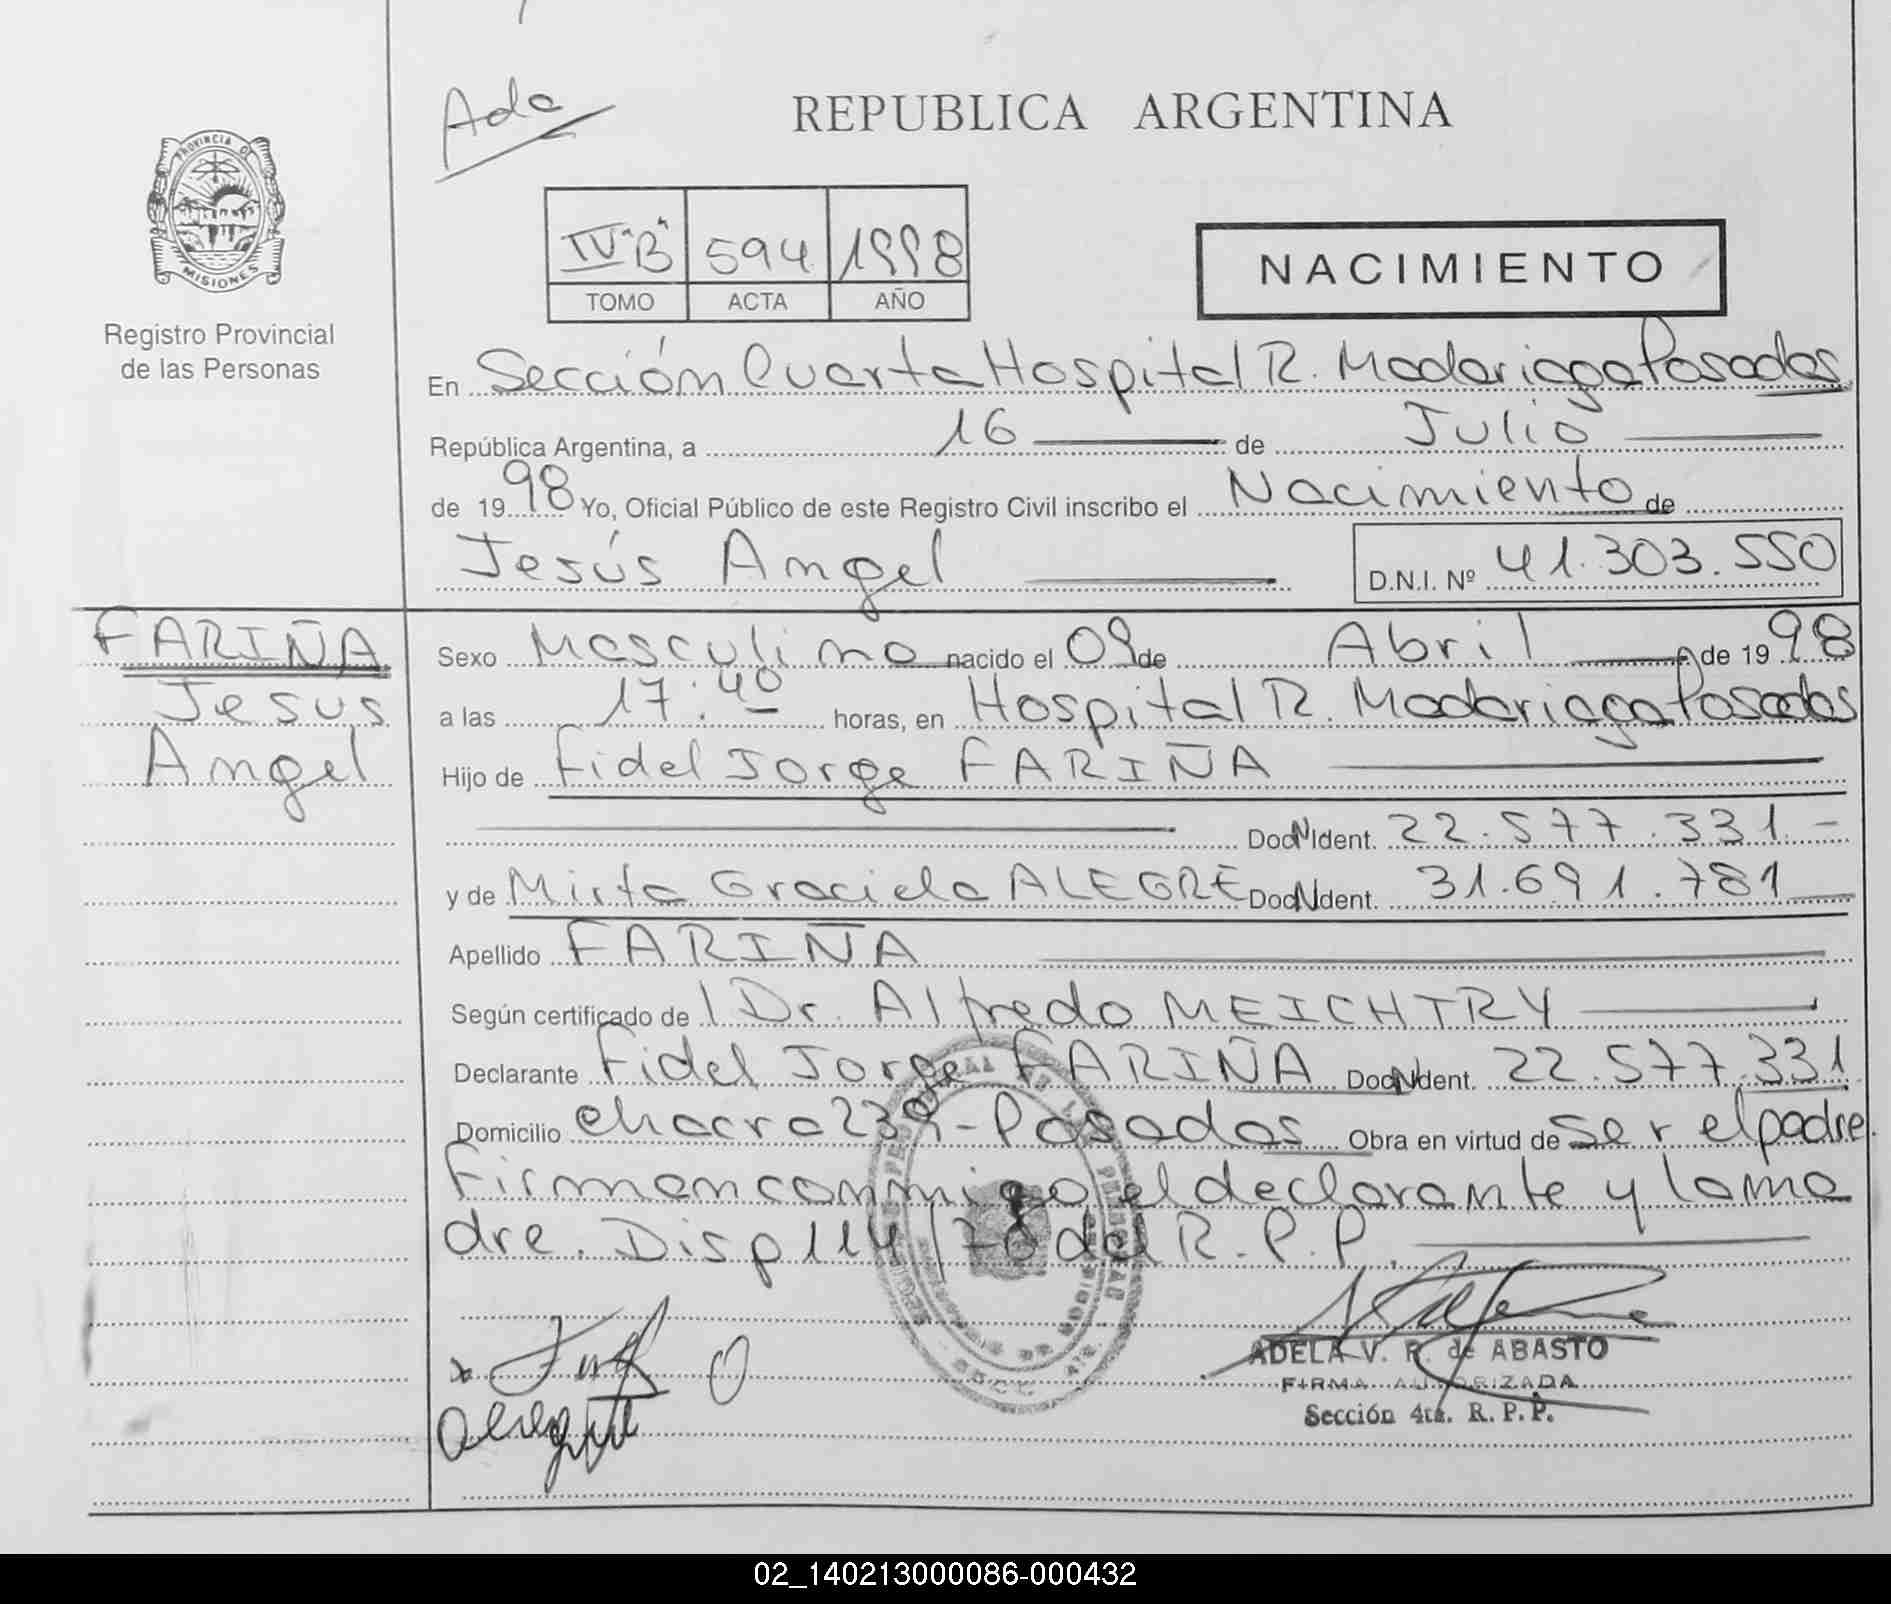 Ada
REPUBLICA ARGENTINA
PROVINCIA DE
MISIONES
Registro Provincial
de las Personas
IV "B" 594 1998
TOMO ACTA AÑO
NACIMIENTO
En Sección Cuarta Hospital R. Madariaga Posadas
República Argentina, a 16 de Julio
de 1998 Yo, Oficial Público de este Registro Civil inscribo el Nacimiento de
Jesús Angel
D.N.I. Nº 41.303.550
FARIÑA
Jesús
Angel
Sexo Masculino nacido el 09 de Abril de 1998
a las 17:40 horas, en Hospital R. Madariaga Posadas
Hijo de Fidel Jorge FARIÑA
Doc N Ident. 22.577.331.-
y de Mirta Graciela ALEGRE Doc N Ident. 31.691.781
Apellido FARIÑA
Según certificado de l Dr. Alfredo MEICHTRY
Declarante Fidel Jorge FARIÑA Doc N Ident. 22.577.331
Domicilio chacra 239 - Posadas Obra en virtud de ser el padre.
Firman conmigo el declarante y la ma
dre. Disp 114/78 del R.P.P.
ADELA V. R. de ABASTO
FIRMA AUTORIZADA
Sección 4ta. R. P. P.
02_140213000086-000432